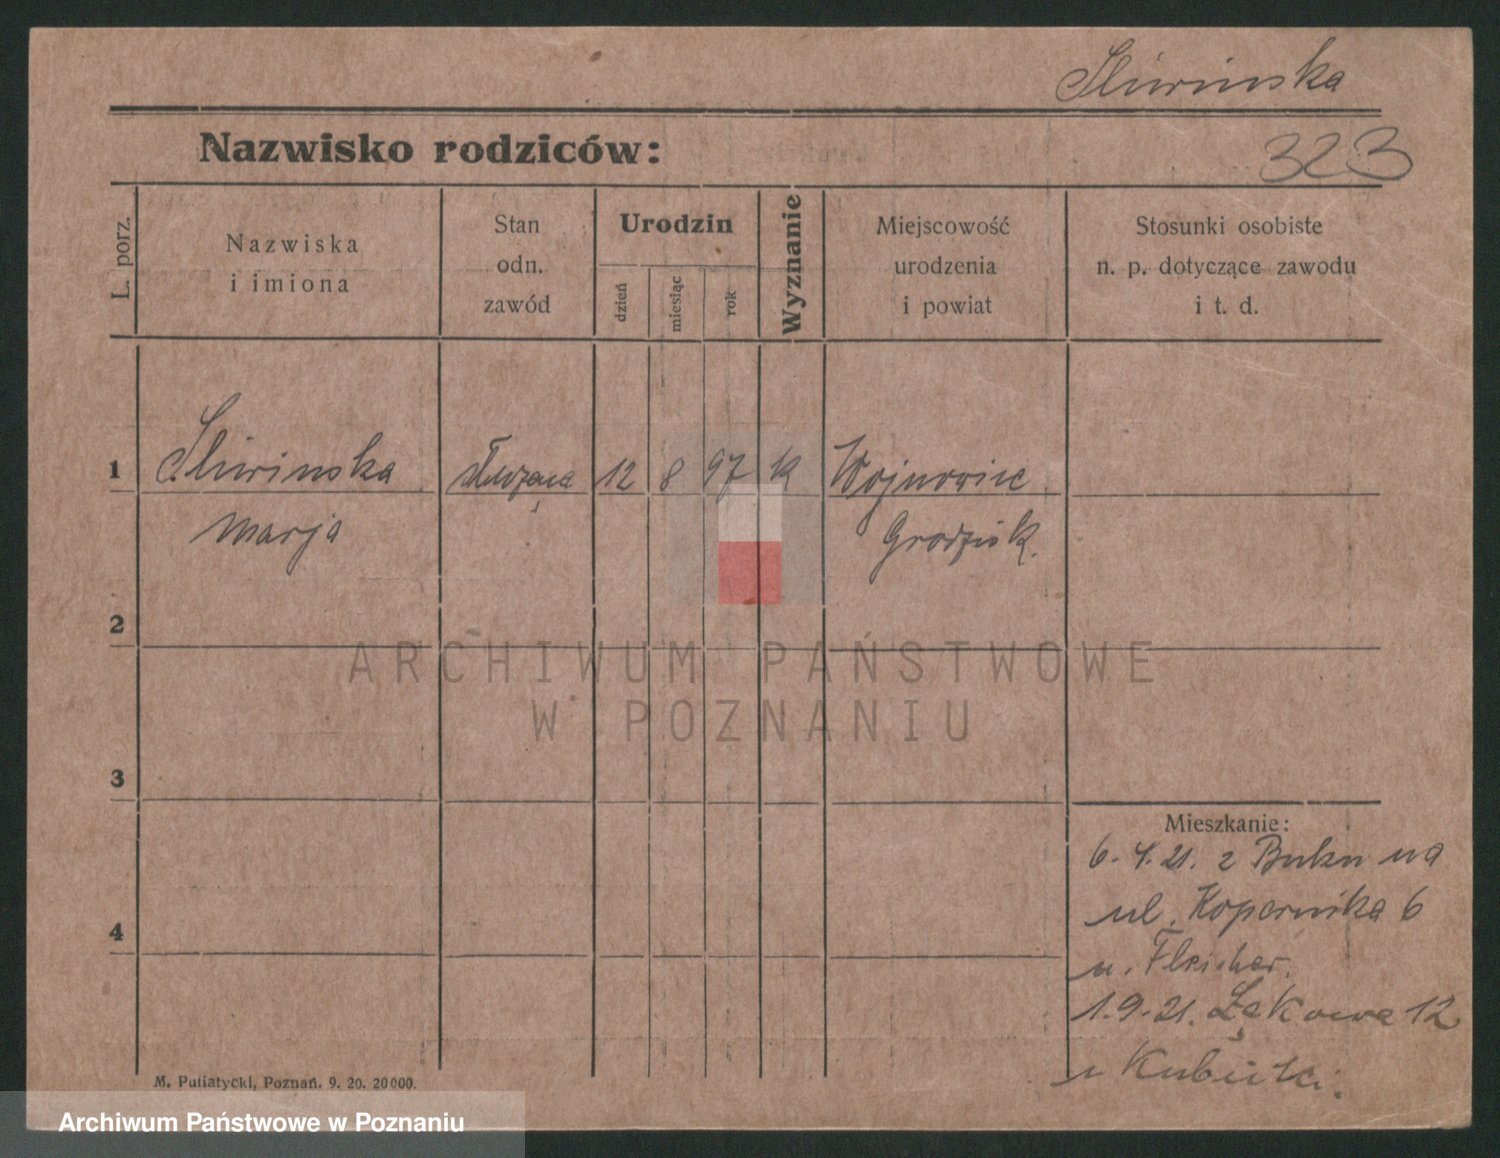 Sliwinska
Nazwisko rodziców:
323
L. porz.
Nazwiska
i imiona
Stan
odn.
zawód
Urodzin
dzień
miesiąc
rok
Wyznanie
Miejscowość
urodzenia
i powiat
Stosunki osobiste
n. p. dotyczące zawodu
i t. d.
1
Sliwinska
służąca
12
8
97
k
Wojnowice
Marja
Grodzisk.
2
ARCHIWUM PAŃSTWOWE
W POZNANIU
3
Mieszkanie:
6. 4. 21. z Buku na
ul. Kopernika 6
4
u. Fleischer.
1. 9. 21. Łąkowa 12
u
M. Putiatycki, Poznań. 9. 20. 20000.
Archiwum Państwowe w Poznaniu